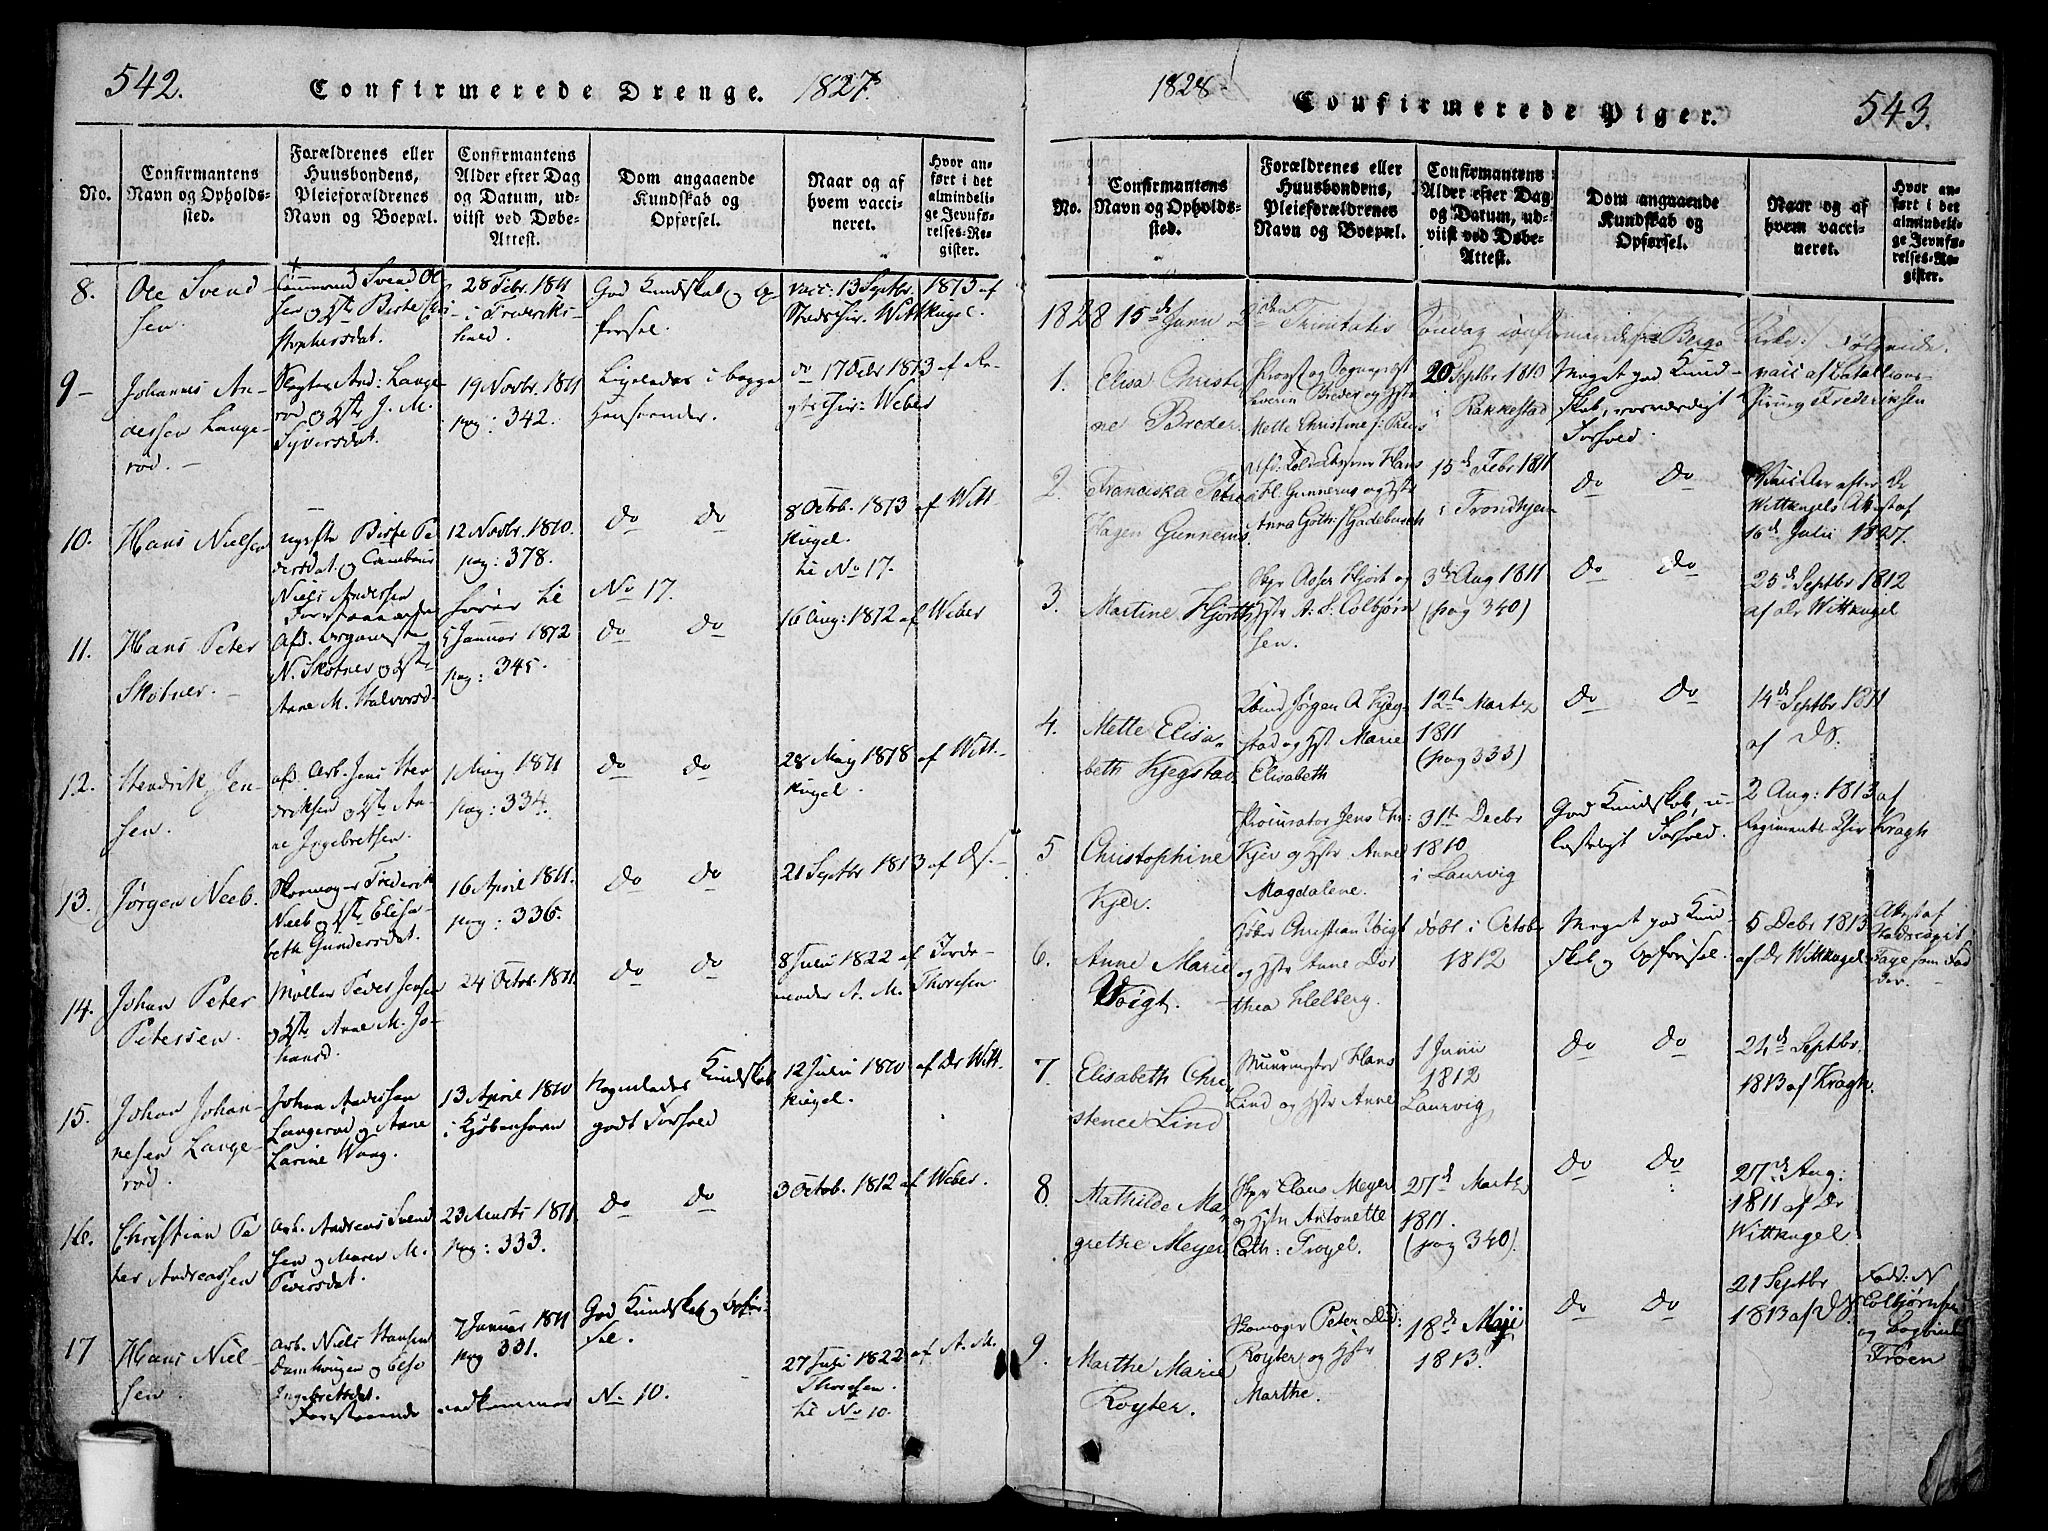 542.
Confirmerede Drenge. 1827.
No.
Confirmantens
Navn og Opholds-
sted.
Forældrenes eller
Huusbondens,
Pleieforældrenes
Navn og Boepæl.
Confirmantens
Alder efter Dag
og Datum, ud-
viist ved Døbe-
Attest.
Dom angaaende
Kundskab og
Opførsel.
Naar og af
hvem vacci-
neret.
Hvor an-
ført i det
almindeli-
ge Jevnfø-
relses-Re-
gister.
8.
Ole Svend
sen.
Svend Ol
sen og
stophersdat.
28 Febr. 1811
i Frederiks-
hald.
God Kundskab og Op
førsel.
vacc: 13 Septbr. 1813 af
Wittkugel.
9
Johannes An-
dersen Lange-
rød.
And: Lange-
rød og J. M.
Syversdat.
19 Novbr. 1811
pag: 342.
Ligeledes i begge
Henseender.
do 17 Octr 1813 af Re-
Weber
10.
Hans Nielsen
Pe
dersdat. og
Niels Andersen
12 Novbr. 1810.
pag: 378.
hører til No 17.
do do
8 Octob. 1813 af Witt-
kugel.
til No 17.
11.
Hans Peter
Skøtner.
Afd. Organist
N. Skøtner og
Anne M. Halvorsd.
5 Januar 1812
pag: 345.
do do
16 Aug: 1812 af Weber
12.
Hendrik Jen-
sen.
afd. Arb. Jens Hen
driksen og An-
ne Ingebretsen.
1 May 1811
pag: 334.
do do
28 May 1818 af Witt-
kugel.
13.
Jørgen Neeb.
Skomager Frederik
Neeb og Elisa-
beth Gundersdat.
16 April 1811.
pag: 336.
do do
21 Septbr 1813 af DS.
14.
Johan Peter
Petersen.
Møller Peder Jensen
og Anne M. Jo-
hansd.
24 Octob. 1811.
do do
8 Julii 1822 af Jorde-
moder A. M. Thoresen.
15.
Johan Johan-
nesen Lange-
rød.
Johan Andersen
Langerød og Anne
Larine Wang.
13 April 1810
i Kjøbenhavn
Nogenledes Kundskab
godt Forhold
12 Julii 1810 af Dr Witt-
kugel.
16.
Christian Pe
ter Andreassen
Arb. Andreas Svend
sen og Maren M.
Pedersdat.
23 Marts 1811.
pag: 333.
do do
3 Octob. 1812 af Weber.
17
Hans Niel-
sen.
Arb. Niels Hansen
Damhaugen og
Ingebretsdat.
Forestaaende
7 Januar 1811
pag 331.
vedkommer No. 10.
God Kundskab og Opfør-
sel.
27 Julii 1822 af A. M.
Thoresen.
til No 10.
1828
Confirmerede Piger. 543.
No.
Confirmantens
Navn og Opholds-
sted.
Forældrenes eller
Huusbondens,
Pleieforældrenes
Navn og Boepæl.
Confirmantens
Alder efter Dag
og Datum, ud-
viist ved Døbe-
Attest.
Dom angaaende
Kundskab og
Opførsel.
Naar og af
hvem vacci-
neret.
Hvor an-
ført i det
almindeli-
ge Jevnfø-
relses-Re-
gister.
1828 15de Juni 2den Trinitatis Søndag confirmerede fra Bergs Kirke: Følgende.
1.
Elisa Christi
ne Breder
Provst og Sogneprest
Severin Breder og Hstr
Mette Christine f: Piens
20 Septbr 1810
i Rakkestad
Meget god Kund-
skab, roesværdigt
Forhold.
vacc af Batallions-
Chirurg Frederiksen
2.
Franciska Petrea
Hagen Gunnerus.
Hans
H. Gunnerus og Hstr
Anna Cath: f Gadebusch
15de Febr 1811
i Trondhjem
do do
efter Dr
Wittkugels Attest af
16de Julii 1827.
3.
Martine Hjorth
Skpr Asser Hjort og
Hstr A: S: Colbjørn
sen.
3de Aug 1811
(pag 340)
do do
25de Septbr 1812
af Dr Wittkugel
4.
Mette Elisa-
beth Kjegstad.
Jørgen A Kjeg-
stad og Hst Marie
Elisabeth
12te Martz
1811
(pag 333)
do do
14de Septbr 1811
af DS.
5
Christophine
Kjer.
Procurator Jens Chr:
Kjer og Hstr Anne
Magdalene.
31te Decbr
1810
i Laurvig
God Kundskab, u-
lasteligt Forhold.
2 Aug: 1813 af
Regiments Chir Kragh
6.
Anne Marie
Voigt.
Christian Voigt
og Hstr Anne Dor
thea Helberg.
døbt i Octobr
1812
Meget god Kund
skab og Opførsel.
5 Debr 1813
af Dr Wittkugel
Attest af
Faye som Fad
der.
7.
Elisabeth Chri
stence Lind
Muurmester Hans
Lind og Hstr Anne
1 Junii
1812
Laurvig
do do
24de Septbr.
1813 af Kragh.
8.
Mathilde Ma-
grethe Meyer
Skpr Claus Meyer
og Hstr Antonette
Cath: Troyel.
27de Martz
1811.
(pag 340).
do do
27de Aug:
1811 af Dr
Wittkugel
9.
Marthe Marie
Royter.
Skomagr Peter Did:
Royter og Hstr
Marthe.
18de Maji
1813.
do do
21 Septbr
1813 af DS.
Fadd: N
Colbjørnsen
og Bogbinder
Troen